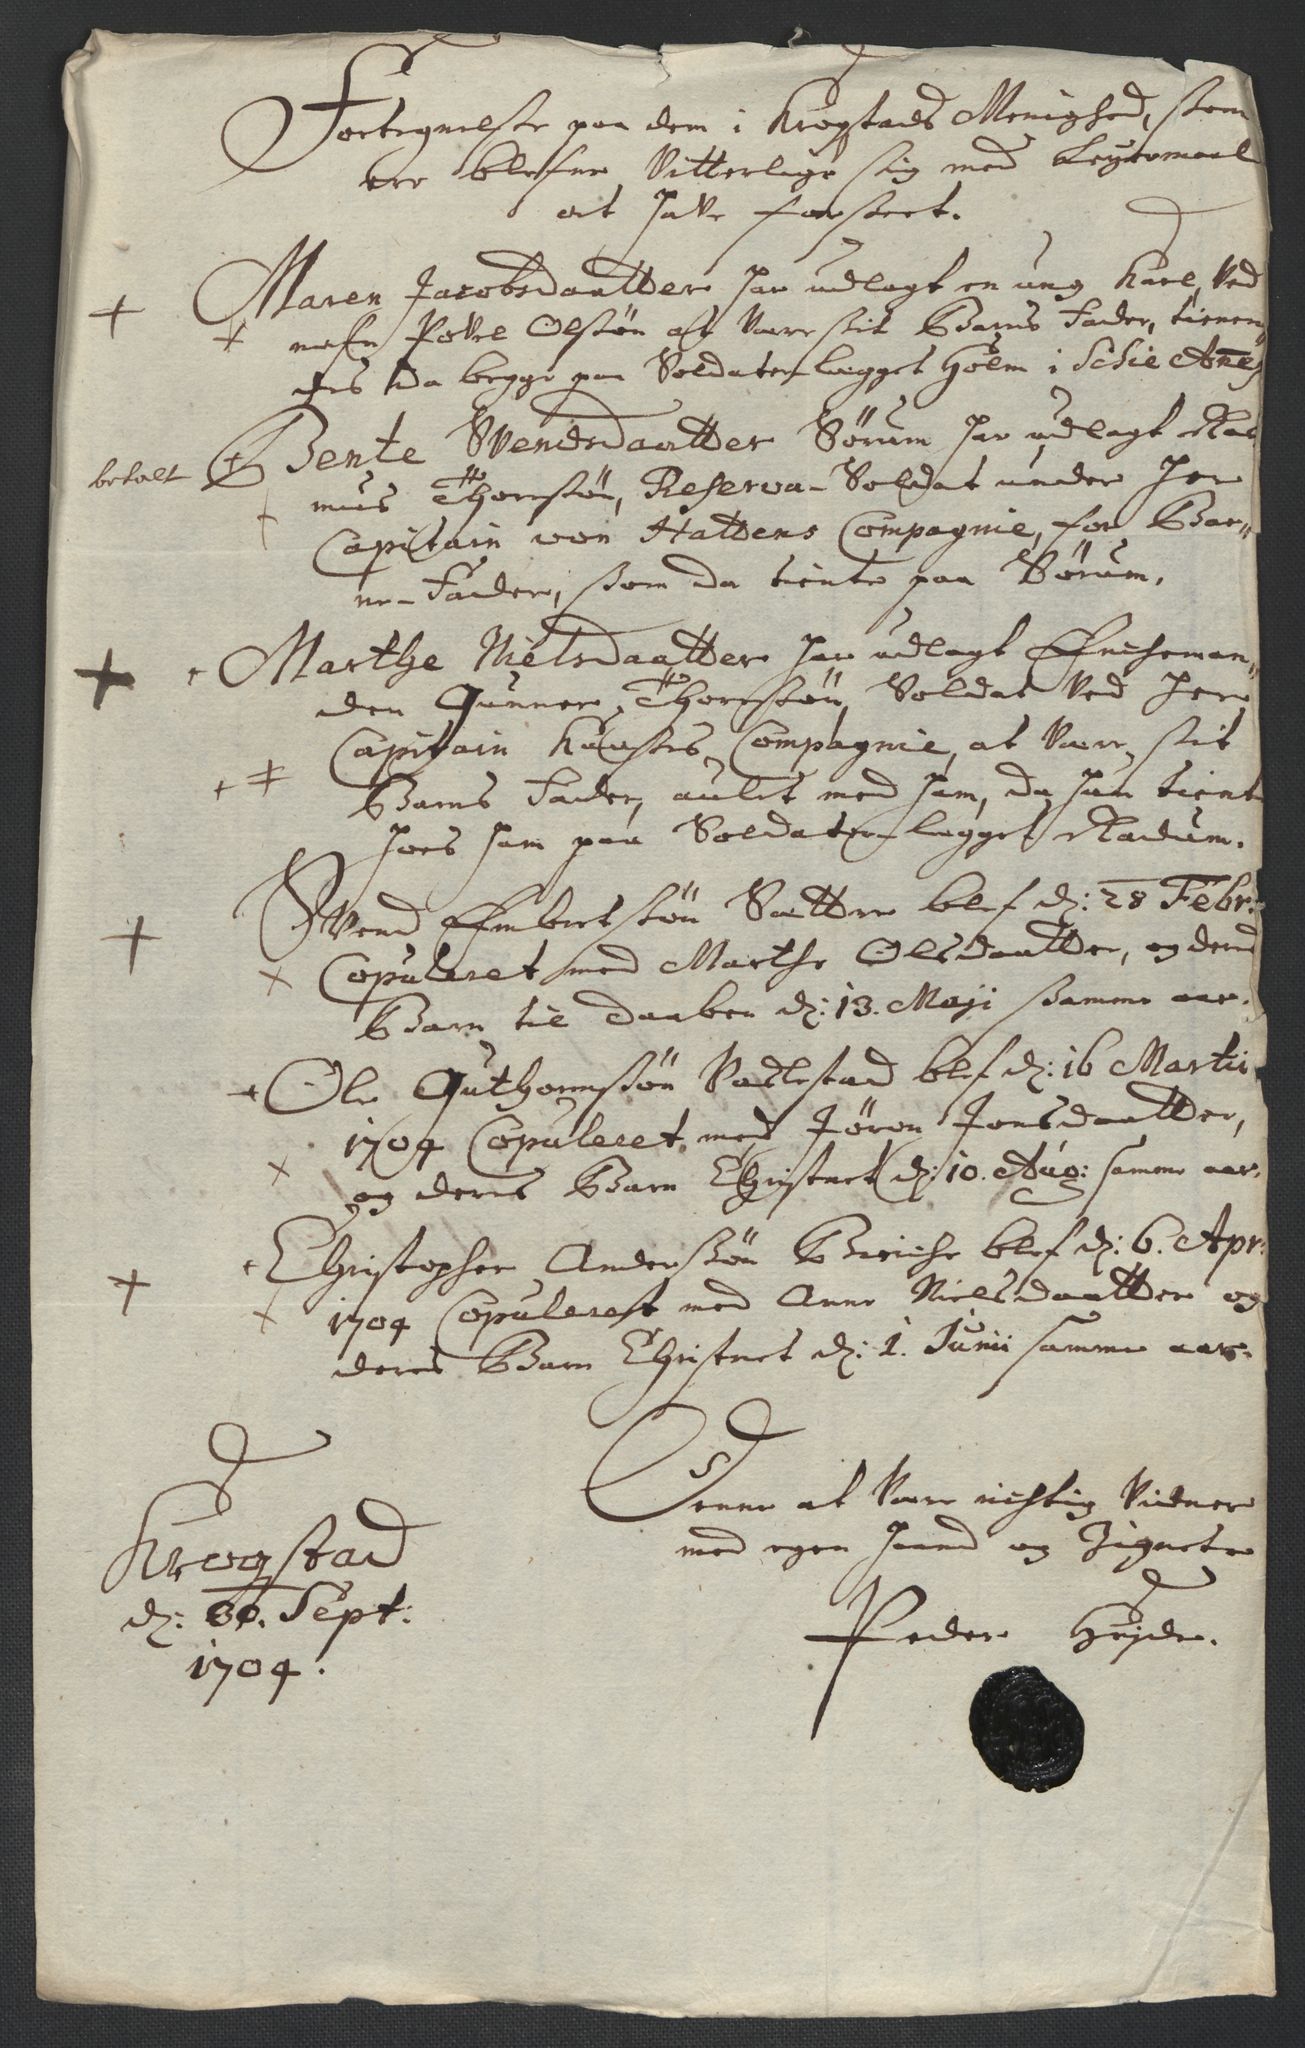 Fortegnelse paa dem i Krogstads Menighed, som
ere blefne vitterlige sig med Leyermaal
at have forseet.
Maren Jacobsdaatter har udlagt en ung Karl, ved
nafn Povel Olssøn at være sit Barns Fader, tienen
des da begge paa Soldater-lægget Holm i Schie
betalt Bente Svendsdaatter Sørum har udlagt Ras
mus Thorssøn, Reserva-Soldat under Her
Capitain von Hattens Compagnie, for Bar-
ne-Fader, som da tiente paa Sørum.
Marthe Nielsdaatter har udlagt Encheman-
den Gunner Thorssøn, Soldat ved Her
Capitain Compagnie, at være sit
Barns Fader, aulet med ham, da hun tiente
hoes ham paa Soldater-lægget
Svend Embretssøn Sætter blef d: 28 Febr:
Copuleret med Marthe Olsdaatter, og deris
Barn til daaben d: 13. Maji samme aar.
Ole Guthormssøn blef d: 16 Martii
1704 Copuleret med Jøron Jonsdaatter,
og deris Barn Christnet d: 10. Aug: samme aar.
Christopher Anderssøn blef d: 6. Apr:
1704 Copuleret med Anne Nielsdaatter og
deris Barn Christnet d: 1. Junii samme aar.
Dette at være rigtig vidner
med egen Haand og Zignete
Krogstad
d: 30. Sept:
1704.
Peder Hejde.